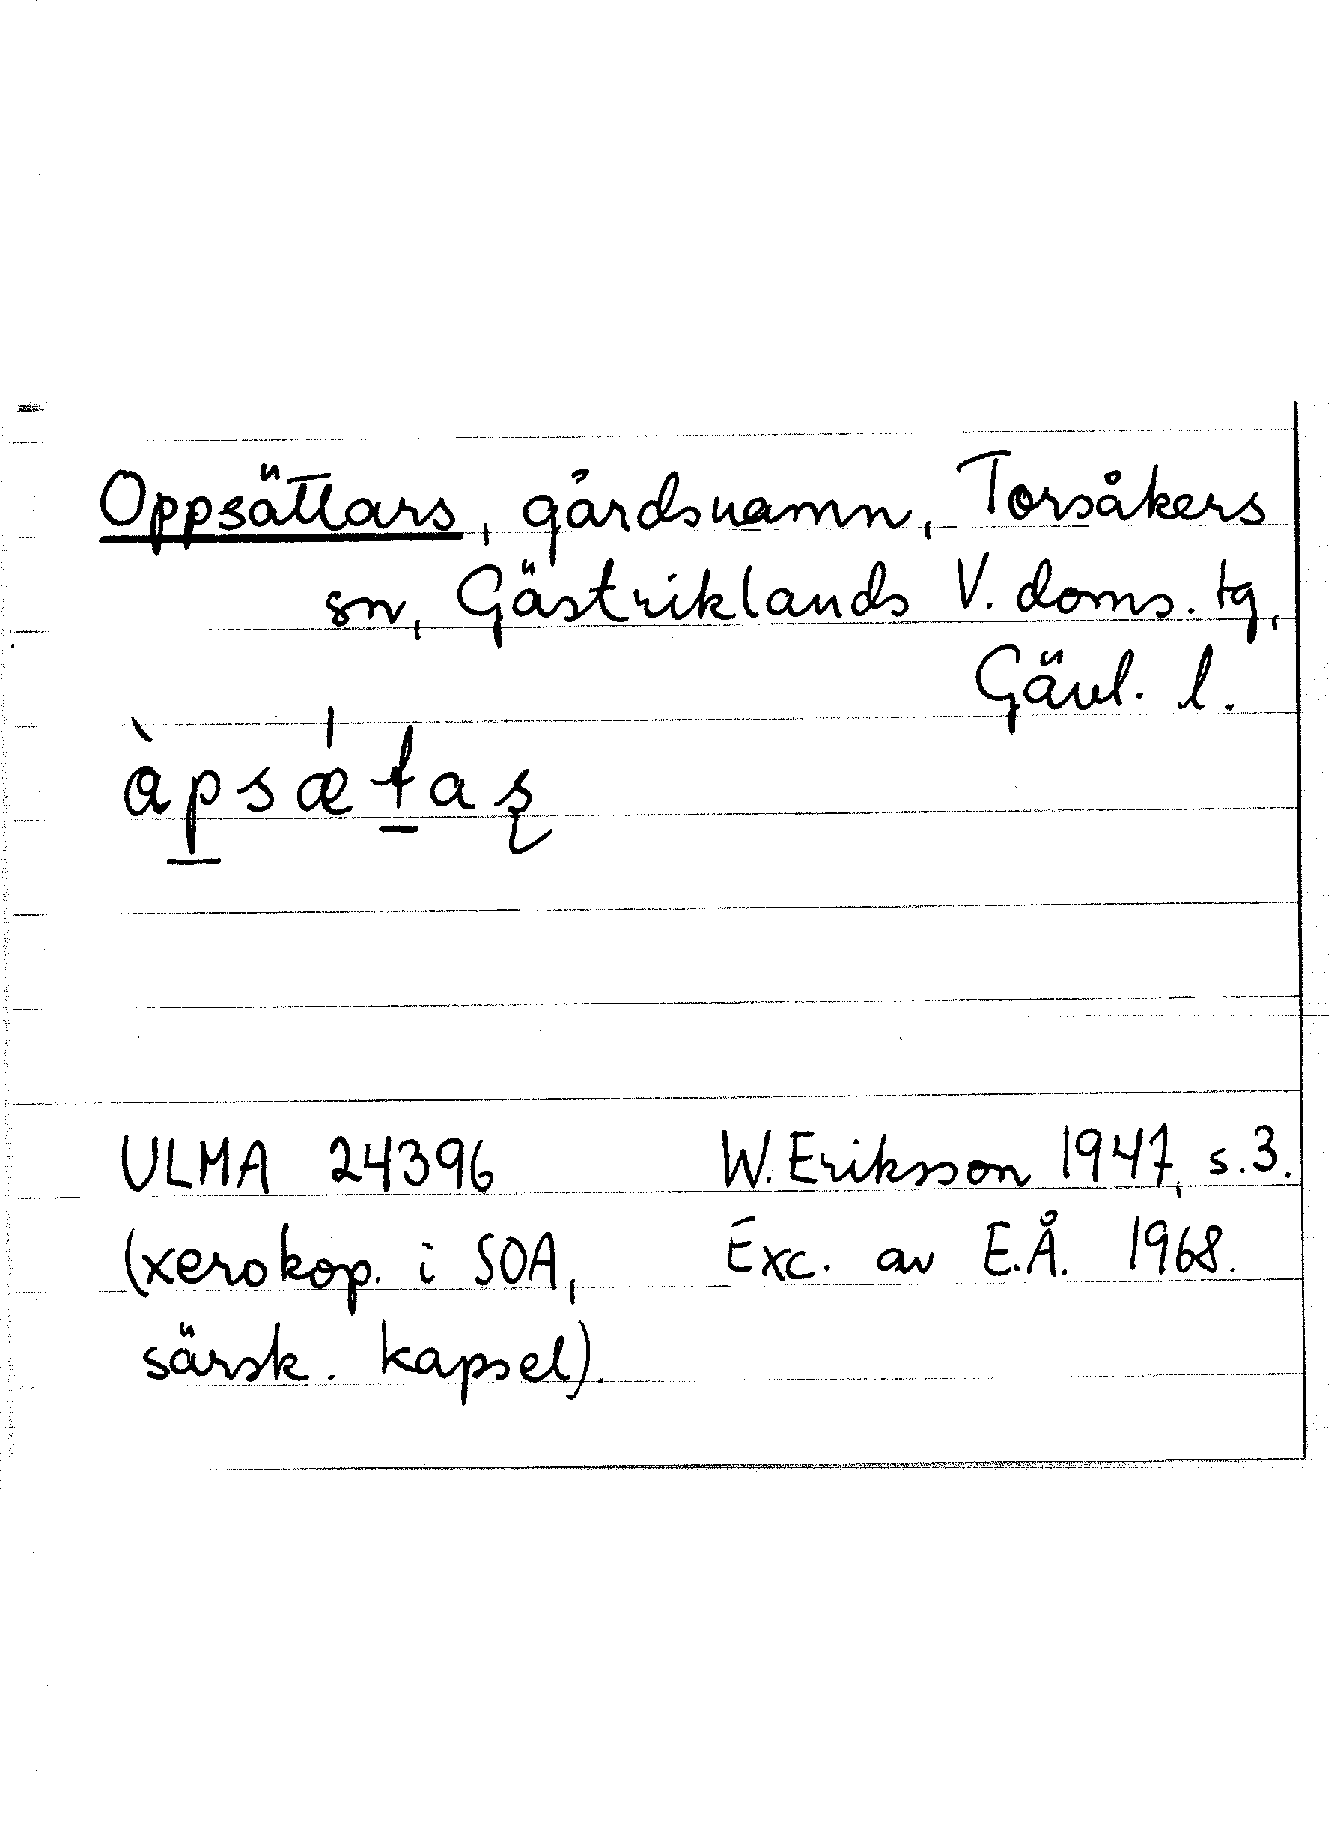 Oppsättars, gårdsnamn, Torsåkers
sn, Gästriklands V. doms. tg,
Gävl. l.
àp̲sæ̍t̲aʂ
ULMA 24396 W. Eriksson 1947, s. 3.
(xerokop. i SOA, Exc. av E.Å. 1968.
särsk. kapsel).